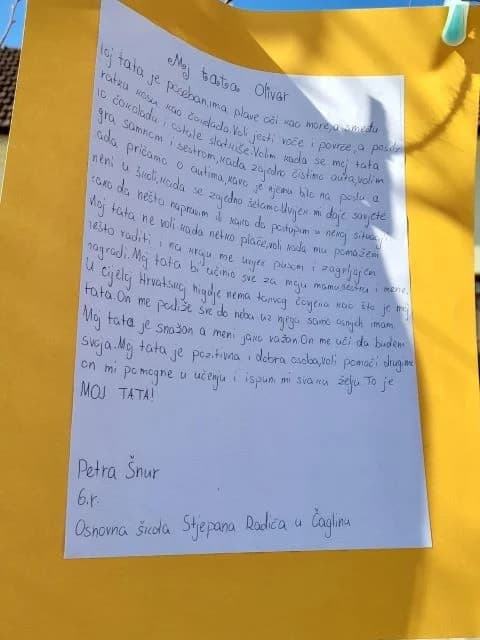 Moj tata Olivar
Moj tata je poseban,ima plave oči kao more,a smeđu
kosu kao čokolada.Voli jesti voće i povrće,a posli-
je čokoladu i ostale slatkiše.Volim kada se moj tata
igra samnom i sestrom,kada zajedno čistimo auta,volim
kada pričamo o autima,kako je njemu bilo na poslu a
meni u školi,kada se zajedno šetamo.Uvijek mi daje savjete
kako da nešto napravim ili kako da postupim u nekoj situaciji.
Moj tata ne voli kada netko plače,voli kada mu pomažem
nešto raditi i na kraju me uvijek pusom i zagrljajem
nagradi.Moj tata bi učinio sve za moju mamu,sestru i mene.
U cijeloj Hrvatskoj nigdje nema takvog čovjeka kao što je moj
tata.On me podiže sve do neba uz njega samo osmjeh imam.
Moj tata je snažan a meni jako važan.On me uči da budem
svoja.Moj tata je pozitivna i dobra osoba,voli pomoći drugima
on mi pomogne u učenju i ispuni mi svaku želju.To je
MOJ TATA!
Petra Šnur
6.r.
Osnovna škola Stjepana Radića u Čaglinu